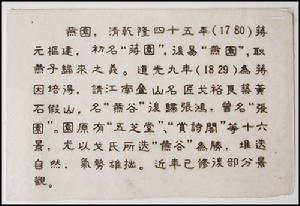 燕園，清乾隆四十五年(1780)蔣
元樞建，初名“蔣園”，後易“燕園”，取
燕子歸來之义。道光九年(1829)為蔣
因培得，請江南叠山名匠戈裕良叠黃
石假山，名“燕谷”後歸張鴻，曾名“張
園”。園原有“五芝堂”、“賞詩閣”等十六
景，尤以戈氏所迭“燕谷”為勝，堆迭
自然，氣勢雄拙。近年已修復部分景
觀。